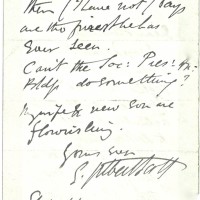 them (I have not) says
are the finest he has
ever seen.
Can't the Soc: Pres: An:
Bldgs do something?
My wife & new son are
flourishing.
Yours ever
G. Gilbert Scott